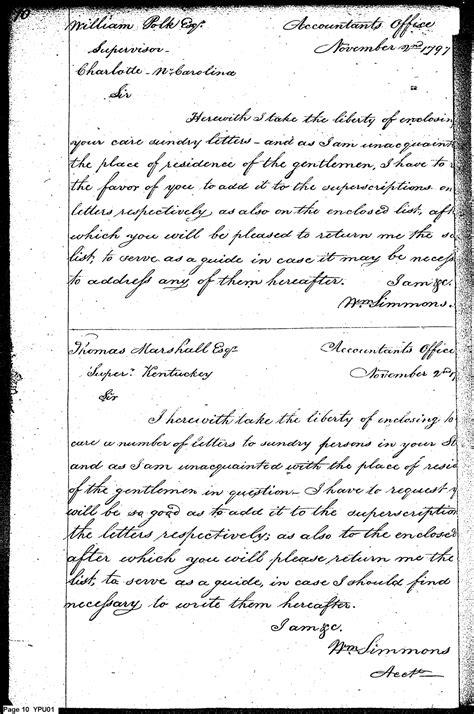 10
William Polk Esqr. Accountants Office
Supervisor November 2nd 1797
Charlotte - No. Carolina
Sir
Herewith I take the liberty of enclosin
your care sundry letters - and as I am unacquaint
the place of residence of the gentlemen, I have to
the favor of you to add it to the superscriptions on
letters respectively, as also on the enclosed list, aft
which you will be pleased to return me the s
list, to serve as a guide in case it may be necess
to address any of them hereafter. I am &c.
Wm. Simmons.
Thomas Marshall Esqr. Accountants Office
Superr. Kentuckey November 2nd 1
Sir
I herewith take the liberty of enclosing to
care a number of letters to sundry persons in your St
and as I am unacquainted with the place of resid
of the gentlemen in question - I have to request y
will be so good as to add it to the superscription
the letters respectively; as also to the enclosed
after which you will please return me the
list, to serve as a guide, in case I should find
necessary to write them hereafter.
I am &c.
Wm. Simmons
Acct.
Page 10 YPU01